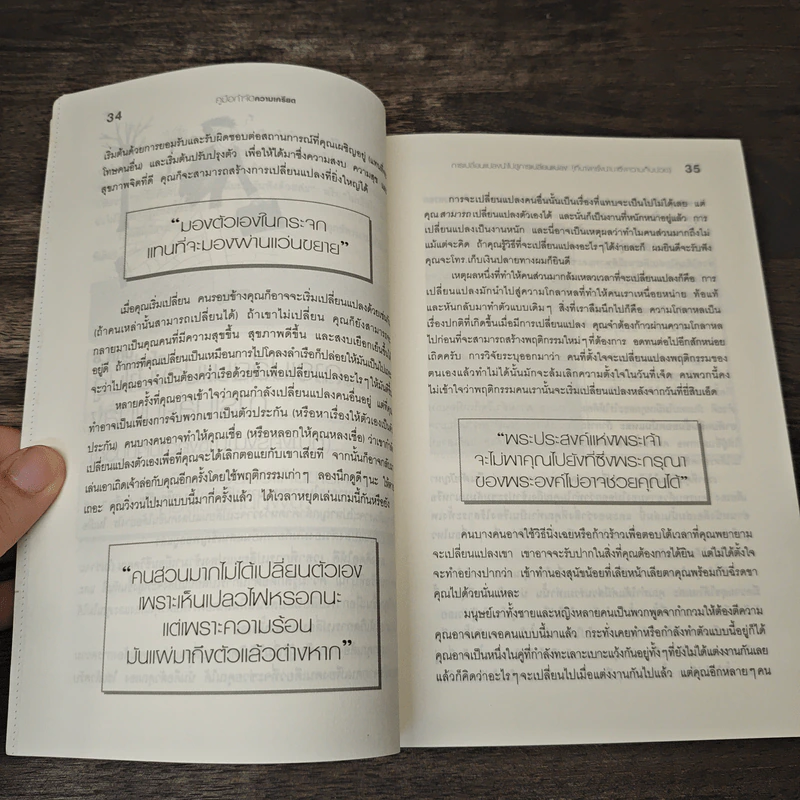 34
คู่มือกำจัดความเครียด
เริ่มต้นด้วยการยอมรับและรับผิดชอบต่อสถานการณ์ที่คุณเผชิญอยู่
โทษคนอื่น) และเริ่มต้นปรับปรุงตัว เพื่อให้ได้มาซึ่งความสงบ ความสุข
สุขภาพจิตที่ดี คุณก็จะสามารถสร้างการเปลี่ยนแปลงที่ยิ่งใหญ่ได้
“มองตัวเองในกระจก
แทนที่จะมองผ่านแว่นขยาย”
เมื่อคุณเริ่มเปลี่ยน คนรอบข้างคุณก็อาจจะเริ่มเปลี่ยนแปลงด้วยเช่น
(ถ้าคนเหล่านั้นสามารถเปลี่ยนได้) ถ้าเขาไม่เปลี่ยน คุณก็ยังสามารถ
กลายมาเป็นคุณคนที่มีความสุขขึ้น สุขภาพดีขึ้น และสงบเยือกเย็นขึ้น
อยู่ดี ถ้าการที่คุณเปลี่ยนเป็นเหมือนการไปโคลงลำเรือก็ปล่อยให้มันเป็นไป
จะว่าไปคุณอาจจำเป็นต้องคว่ำเรือด้วยซ้ำเพื่อเปลี่ยนแปลงอะไรๆ ให้มันดีขึ้น
หลายครั้งที่คุณอาจเข้าใจว่าคุณกำลังเปลี่ยนแปลงคนอื่นอยู่ แต่ที่คุณ
ทำอาจเป็นเพียงการจับพวกเขาเป็นตัวประกัน (หรือหาเรื่องให้ตัวเองเป็นตัว
ประกัน) คนบางคนอาจทำให้คุณเชื่อ (หรือหลอกให้คุณหลงเชื่อ) ว่าเขากำลัง
เปลี่ยนแปลงตัวเองเพื่อที่คุณจะได้เลิกตอแยกับเขาเสียที จากนั้นก็อาจกลับ
เล่นเอาเถิดเจ้าล่อกับคุณอีกครั้งโดยใช้พฤติกรรมเก่าๆ ลองนึกดูดีๆ นะ
เถอะ คุณวิ่งวนไปมาแบบนี้มากี่ครั้งแล้ว ได้เวลาหยุดเล่นเกมนี้กันหรือยัง
“คนส่วนมากไม่ได้เปลี่ยนตัวเอง
เพราะเห็นเปลวไฟหรอกนะ
แต่เพราะความร้อน
มันแผ่มาถึงตัวแล้วต่างหาก”
35
การจะเปลี่ยนแปลงคนอื่นนั้นเป็นเรื่องที่แทบจะเป็นไปไม่ได้เลย แต่
คุณสามารถเปลี่ยนแปลงตัวเองได้ และนั่นก็เป็นงานที่หนักหนาอยู่แล้ว การ
เปลี่ยนแปลงเป็นงานหนัก และนี่อาจเป็นเหตุผลว่าทำไมคนส่วนมากถึงไม่
แม้แต่จะคิด ถ้าคุณรู้วิธีที่จะเปลี่ยนแปลงอะไรๆ ได้ง่ายละก็ ผมยินดีจะรับฟัง
คุณจะโทร เก็บเงินปลายทางผมก็ยินดี
เหตุผลหนึ่งที่ทำให้คนส่วนมากล้มเหลวเวลาที่จะเปลี่ยนแปลงก็คือ การ
เปลี่ยนแปลงมักนำไปสู่ความโกลาหลที่ทำให้คนเราเหนื่อยหน่าย ท้อแท้
และหันกลับมาทำตัวแบบเดิมๆ สิ่งที่เราลืมนึกไปก็คือ ความโกลาหลเป็น
เรื่องปกติที่เกิดขึ้นเมื่อมีการเปลี่ยนแปลง คุณจำต้องก้าวผ่านความโกลาหล
ไปก่อนที่จะสามารถสร้างพฤติกรรมใหม่ๆ ที่ต้องการ อดทนต่อไปอีกสักหน่อย
เถิดครับ การวิจัยระบุออกมาว่า คนที่ตั้งใจจะเปลี่ยนแปลงพฤติกรรมของ
ตนเองแล้วทำไม่ได้นั้นมักจะล้มเลิกความตั้งใจในวันที่เจ็ด คนพวกนี้คง
ไม่เข้าใจว่าพฤติกรรมคนเรานั้นจะเริ่มเปลี่ยนแปลงหลังจากวันที่ยี่สิบเอ็ด
“พระประสงค์แห่งพระเจ้า
จะไม่พาคุณไปยังที่ซึ่งพระกรุณา
ของพระองค์ไม่อาจช่วยคุณได้”
คนบางคนอาจใช้วิธีนิ่งเฉยหรือก้าวร้าวเพื่อตอบโต้เวลาที่คุณพยายาม
จะเปลี่ยนแปลงเขา เขาอาจจะรับปากในสิ่งที่คุณต้องการได้ยิน แต่ไม่ได้ตั้งใจ
จะทำอย่างปากว่า เข้าทำนองสุนัขน้อยที่เลียหน้าเลียตาคุณพร้อมกับฉี่รดขา
คุณไปด้วยนั่นแหละ
มนุษย์เราทั้งชายและหญิงหลายคนเป็นพวกพูดจากำกวมให้ต้องตีความ
คุณอาจเคยเจอคนแบบนี้มาแล้ว กระทั่งเคยทำหรือกำลังทำตัวแบบนี้อยู่ก็ได้
คุณอาจเป็นหนึ่งในคู่ที่กำลังทะเลาะเบาะแว้งกันอยู่ทั้งๆ ที่ยังไม่ได้แต่งงานกันเลย
แล้วก็คิดว่าอะไรๆ จะเปลี่ยนไปเมื่อแต่งงานกันไปแล้ว แต่คุณอีกหลายๆ คน